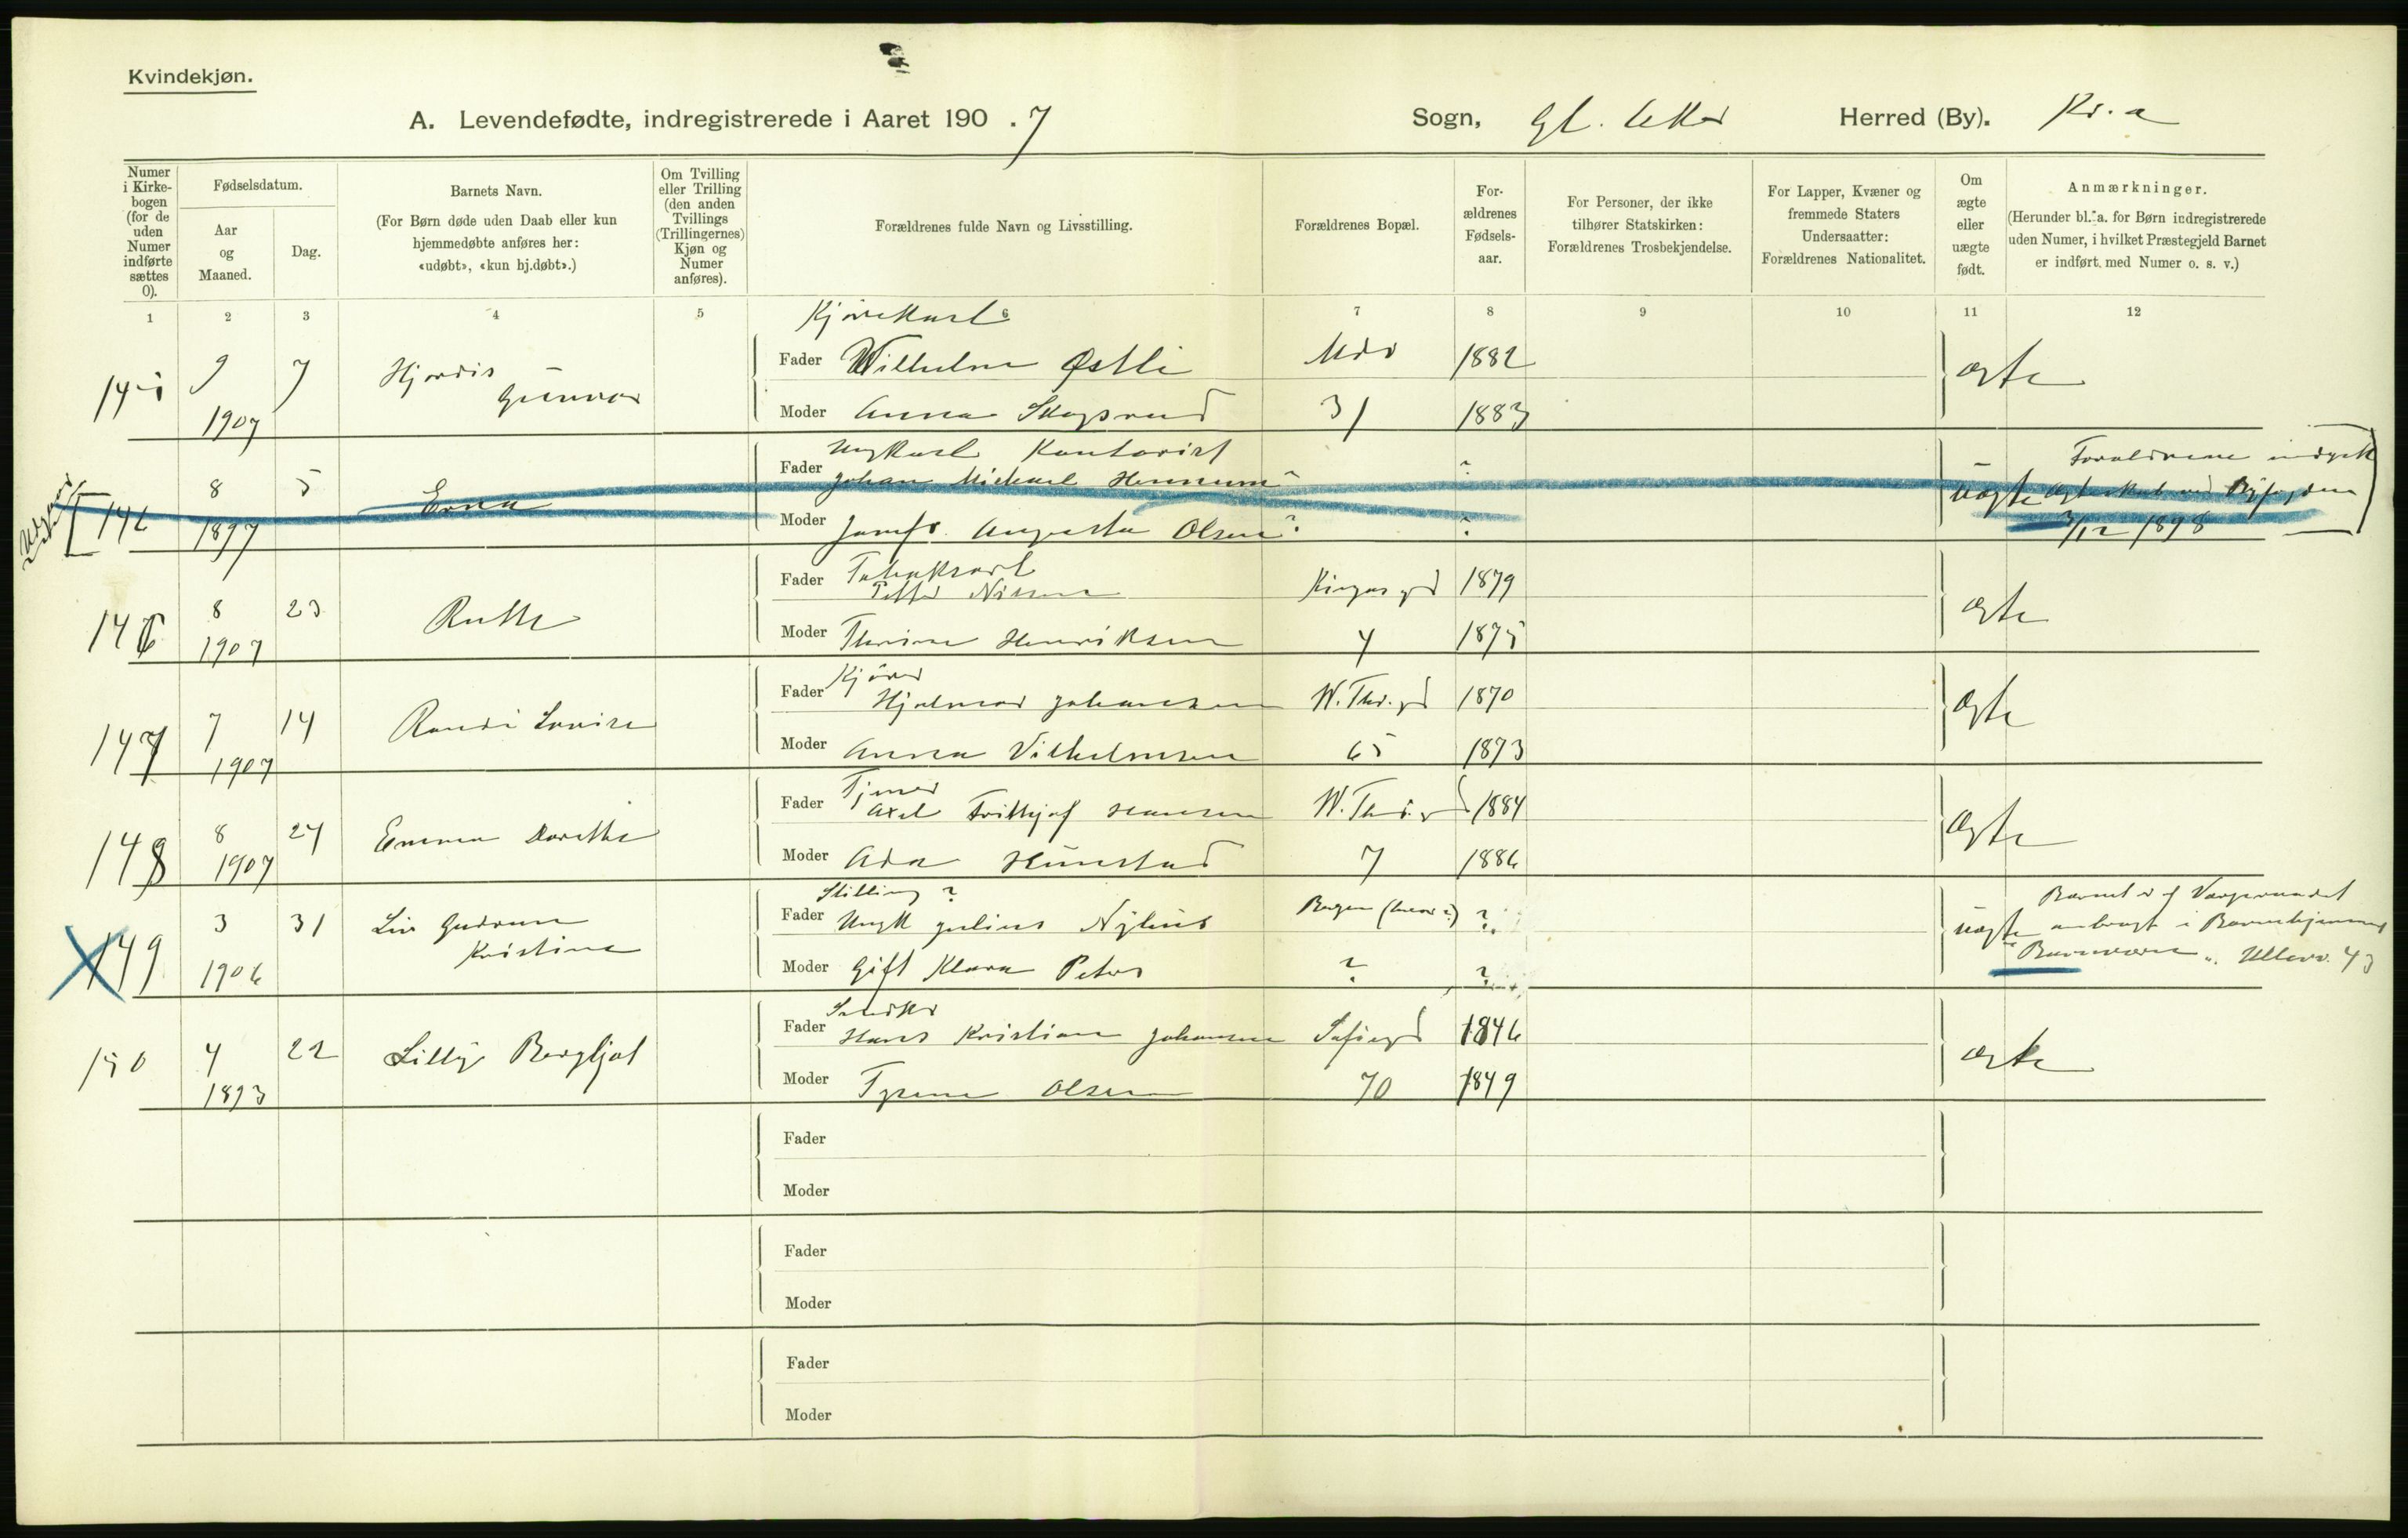 Kvindekjøn.
A. Levendefødte, indregistrerede i Aaret 190 . 7
Sogn, Gl. Aker Herred (By). Kr.a
Numer i Kirke-bogen (for de uden Numer indførte sættes 0).
Fødselsdatum.
Aar og Maaned.
Dag.
Barnets Navn.
(For Børn døde uden Daab eller kun hjemmedøbte anføres her: «udøbt», «kun hj.døbt».)
Om Tvilling eller Trilling (den anden Tvillings (Trillingernes) Kjøn og Numer anføres).
Forældrenes fulde Navn og Livsstilling.
Forældrenes Bopæl.
For-ældrenes Fødsels-aar.
For Personer, der ikke tilhører Statskirken: Forældrenes Trosbekjendelse.
For Lapper, Kvæner og fremmede Staters Undersaatter: Forældrenes Nationalitet.
Om ægte eller uægte født.
Anmærkninger.
(Herunder bl. a. for Børn indregistrerede uden Numer, i hvilket Præstegjeld Barnet er indført med Numer o. s. v.)
1 2 3 4 5 6 7 8 9 10 11 12
Kjørekarl
145 9 7 Hjordis Fader Wilhelm Østli 1882 ægte
1907 Gunvor Moder Anna Skogsrud 31 1883
Ungkarl Kontorist Forældrene indgik
146 8 5 Erna Fader Johan Michael Hennum ? ? uægte Ægteskab ved Byfogden
1897 Moder Jomfr. Augusta Olsen ? ? 3/12 1898
146 8 23 Ruth Fader Petter Nilsen 1879 ægte
1907 Moder Thrine Henriksen 4 1875
Kjører
147 7 14 Randi Lovise Fader Hjalmar Johansen W. Thr. gd 1870 ægte
1907 Moder Anna Vilhelmsen 65 1873
Tjener
148 8 24 Emma Dorethe Fader Axel Frithjof Hansen 1884 ægte
1907 Moder Ada 7 1886
Stilling ? Barnet er af Vergeraadet
149 3 31 Liv Gudrun Fader Ungk Julius Nylius Bergen ? uægte anbragt i Barnehjemmet
1906 Kristine Moder Gift Klara Peters ? ? Ullevv. 43
150 4 22 Lilly Bergljot Fader Hans Kristian Johansen Sofiegd 1846 ægte
1893 Moder Olsen 70 1849
Fader
Moder
Fader
Moder
Fader
Moder